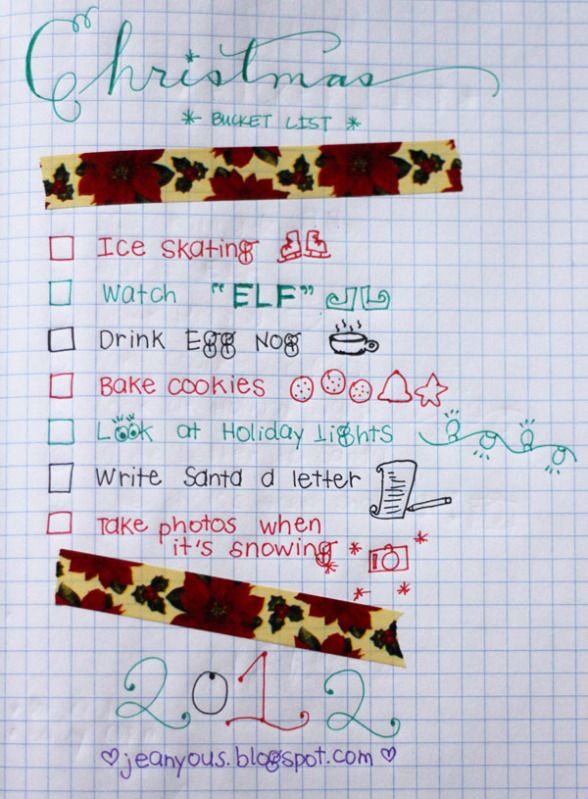 Christmas
* BUCKET LIST *
Ice Skating
Watch "ELF"
Drink Egg Nog
Bake cookies
Look at Holiday Lights
Write Santa a letter
Take photos when
it's snowing
2012
♡jeanyous.blogspot.com♡